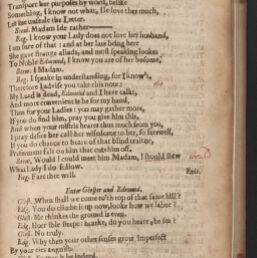 Transport her purposes by word, belike
Something, I know not what, Ile love thee much,
Let me unseale the Letter.
Stew. Madam Ide rather
Reg. I know your Lady does not love her husband,
I am sure of that: and at her late being here
She gave strange aliads, and most speaking lookes
To Noble Edmund, I know you are of her bosome,
Stew. I Madam.
Reg. I speake in understanding, for I know't,
Therefore I advise you take this note:
My Lord is dead, Edmund and I have talkt,
And more convenient is he for my hand,
Then for your Ladies: you may gather more,
If you do find him, pray you give him this,
And when your mistris heares thus much from you,
I pray desire her call her wisedome to her, so farewell,
If you do chance to heare of that blind traitor,
Preferment fals on him that cuts him off.
Stew. Would I could meet him Madam, I should shew
What Lady I do follow.
Reg. Fare thee well. Exit.
Enter Gloster and Edmund.
Glost. When shall we come to'th top of that same hill?
Edg. You do climbe it up now, looke how we labor?
Glost. Me thinkes the ground is even.
Edg. Horrible steepe: hearke, do you heare the sea?
Glost. No truly.
Edg. Why then your other senses grow imperfect
By your eies anguish.